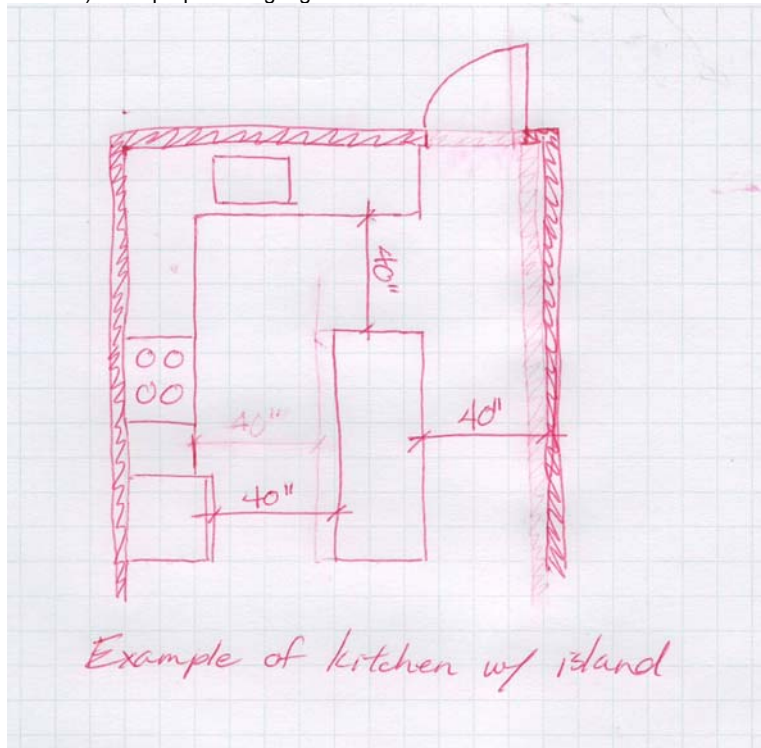 40"
40"
40"
40"
Example of kitchen w/ island